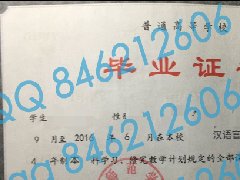 普通高等学校
毕业证
学生 性别
9 月至 2016 年 6 月在本校 汉语言
4 年制本科学习，修完教学计划规定的全部
QQ 846212606
QQ 846212606